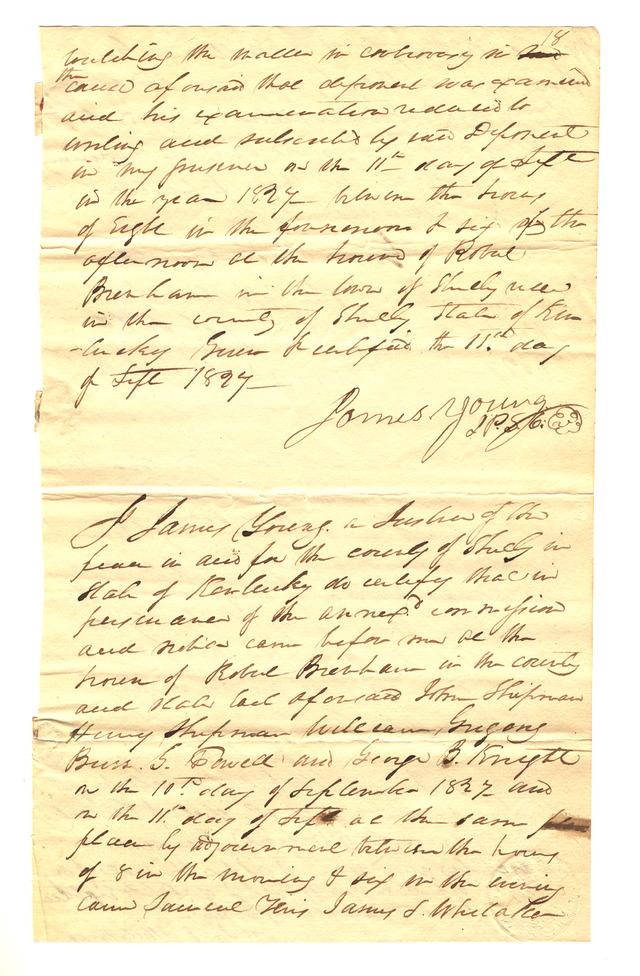 18
touching the matter in controversy in
the
cause aforesaid that deponent was examined
and his examination reduced to
writing and subscribed by said Deponent
in my presence on the 11th day of Sept
in the year 1827 between the hours
of Eight in the forenoon & six of the
afternoon at the house of Robert
Brenham in the town of Shelbyville
in the county of Shelby State of Ken
-tucky Given & certified the 11th day
of Sept 1827
James Young
J.P.S.C.
I James Young a Justice of the
peace in and for the county of Shelby in
State of Kentucky do certify that in
persuance of the annex'd commission
and notice came before me at the
house of Robert Brenham in the county
and state last aforesaid John Shipman
Henry Shipman William Gregory
Burr. G. Powell and George B. Knight
on the 10th day of September 1827 and
on the 11th day of Sept. at the same
place by adjournment between the hours
of 8 in the morning & six in the evening
came Samuel James S. Whitaker